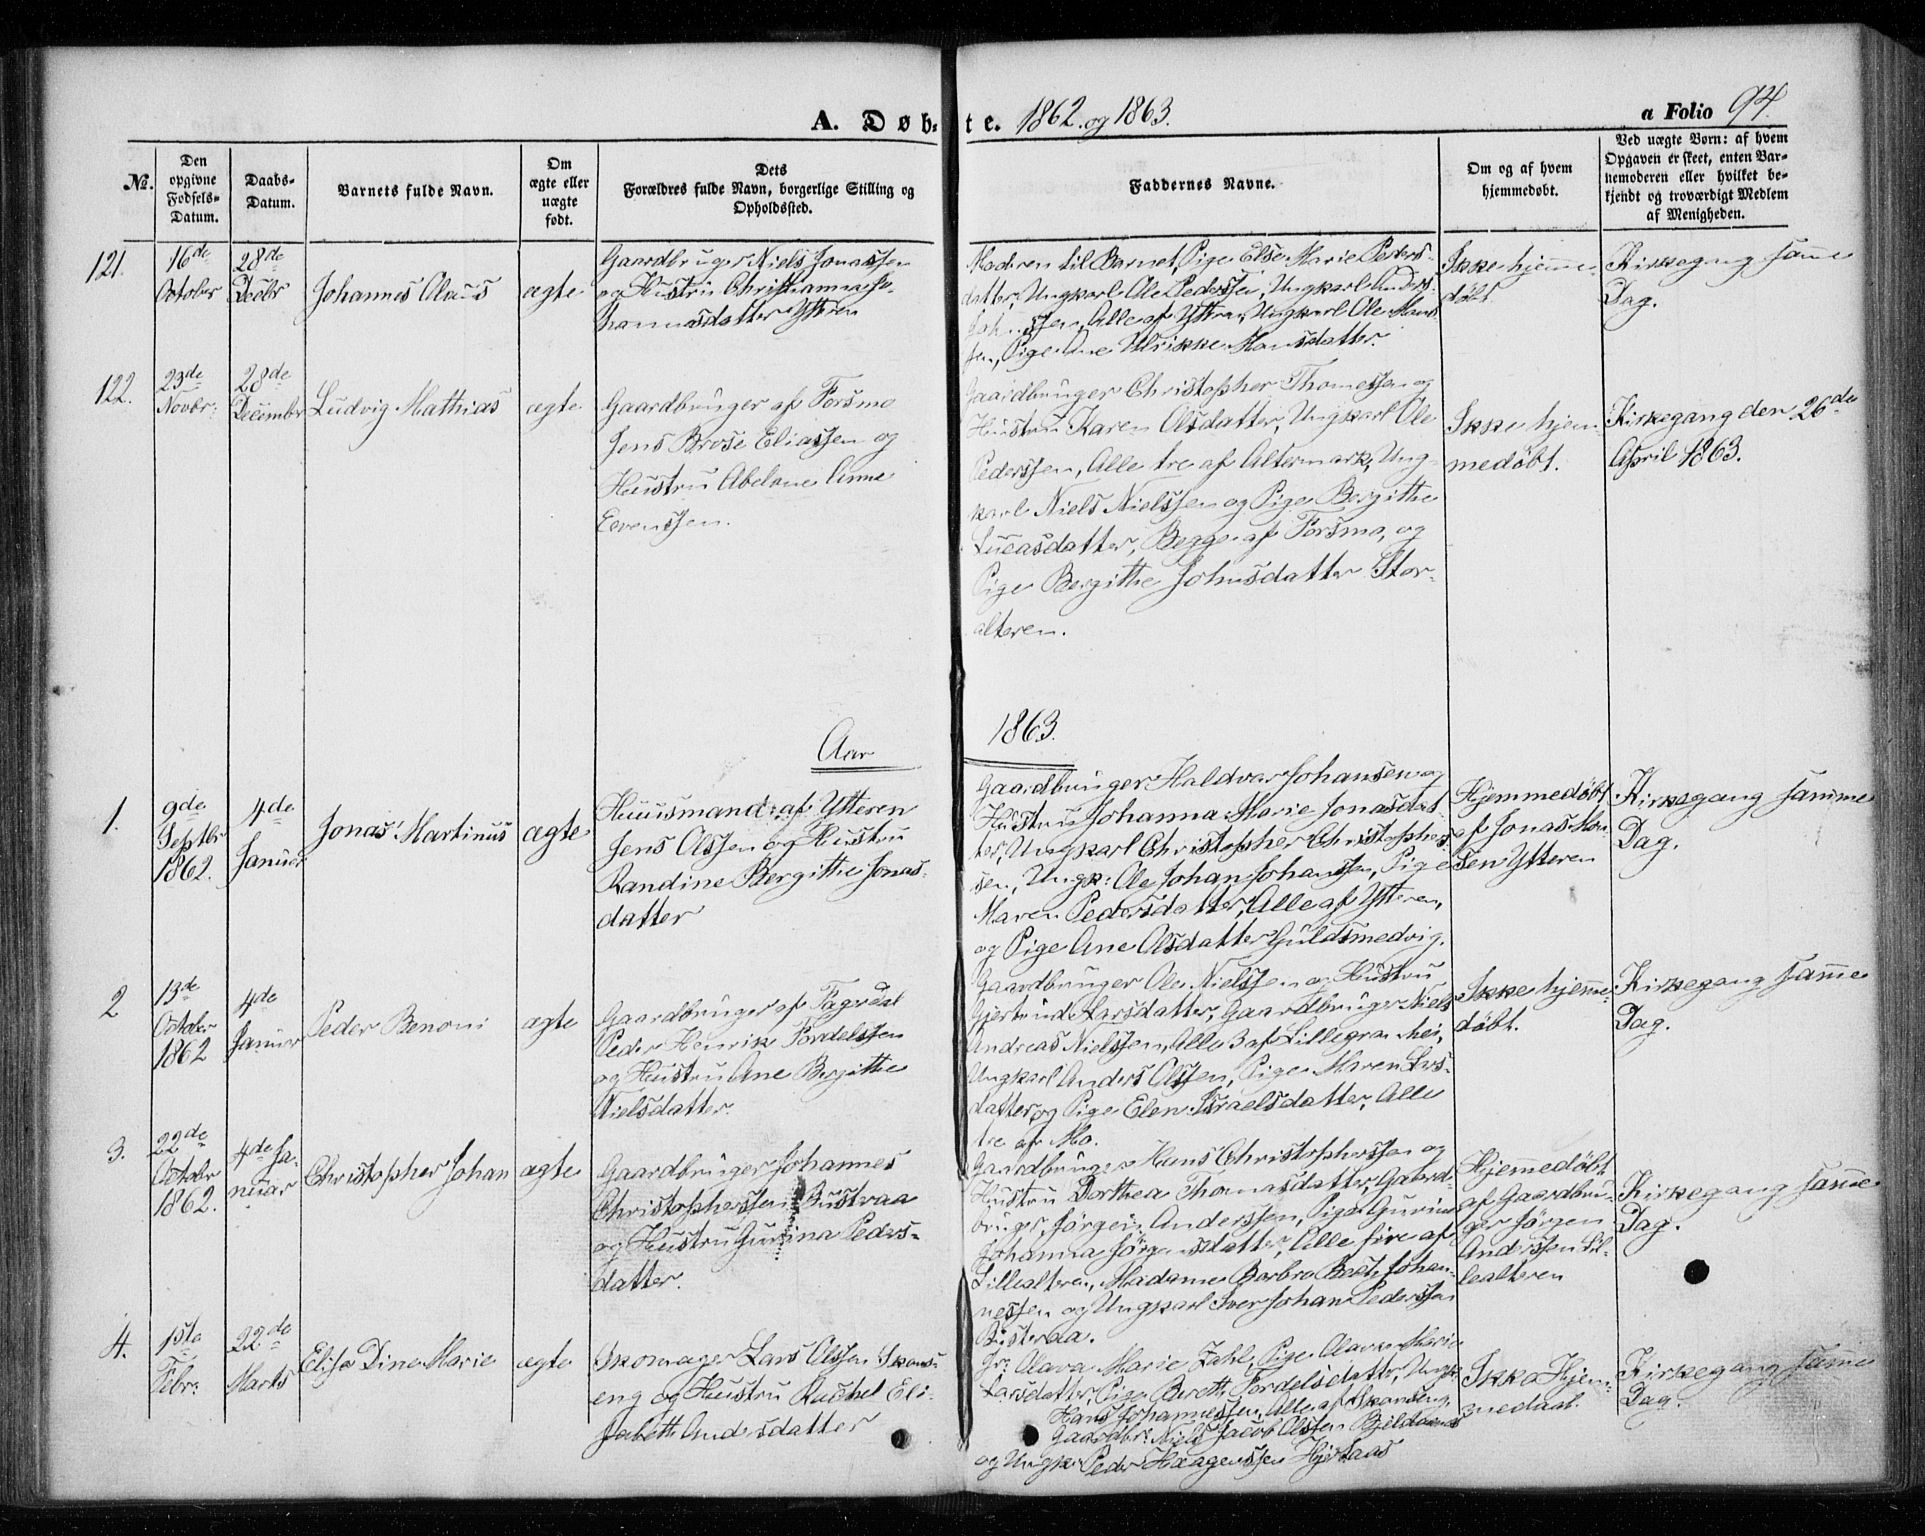 A. Døbte. 1862 og 1863.
a Folio 94.
No.
Den opgivne Fødsels-Datum.
Daabs-Datum.
Barnets fulde Navn.
Om ægte eller uægte født.
Dets Forældres fulde Navn, borgerlige Stilling og Opholdssted.
Faddernes Navne.
Om og af hvem hjemmedøbt.
Ved uægte Børn: af hvem Opgaven er skeet, enten Barnemoderen eller hvilket bekjendt og troværdigt Medlem af Menigheden.
121.
16de
October
28de
Decbr
Johannes Olaus
ægte
Gaardbruger Niels Jonassen
og Hustru Christianna Jo-
hannesdatter Ytteren
Moderen til Barnet, Pige Else Marie Peders-
datter, Ungkarl Ole Pedersen, Ungkarl Anders
Johnssen, Alle af Ytteren, Ungkarl Ole Mons
sen, Pige Ane Ulrikke Monsdatter.
Ikke hjemme-
døbt.
Kirkegang samme
Dag.
122.
23de
Novbr:
28de
December
Ludvig Mathias
ægte
Gaardbruger af Forsmo
Jens Brose Eliassen og
Hustru Abelone Anne
Evenssen.
Gaardbruger Christopher Thomessen og
Hustru Karen Olsdatter, Ungkarl Ole
Pederssen, Alle tre af Altermark, Ung-
karl Niels Nielssen og Pige Bergithe
Lucasdatter, Begge af Forsmo, og
Pige Bergithe Johnsdatter Stor-
alteren.
Ikke hjem-
medøbt.
Kirkegang den 26de
April 1863.
Aar 1863.
1.
9de
Septbr
1862.
4de
Januar
Jonas Martinus
ægte
Huusmand af Ytteren
Jens Olssen og Hustru
Randine Bergithe Jonas-
datter
Gaardbruger Haldvar Johansen og
Hustru Johanna Marie Jonasdat
ter, Ungkarl Christopher Christophers
sen, Ungk: Ole Johan Johanssen, Pige
Maren Pedersdatter, Alle af Ytteren,
og Pige Ane Olsdatter Guldsmedvig.
Hjemmedøbt
af Jonas Mon
sen Ytteren
Kirkegang samme
Dag.
2
13de
October
1862
4de
Januar
Peder Benoni
ægte
Gaardbruger af Fagredal
Peder Henrik Tordelssen
og Hustru Ane Bergitthe
Nielsdatter.
Gaardbruger Ole Nielssen og Hustru
Gjertrud Larsdatter, Gaardbruger Niels
Andreas Nielssen, Alle 3 af Lillegranhei,
Ungkarl Anders Olssen, Pige Maren Lars-
datter, og Pige Elen Israelsdatter, Alle
tre af Mo.
Ikke hjemme-
døbt.
Kirkegang samme
Dag.
3.
22de
Octobr
1862.
4de Ja-
nuar
Christopher Johan
ægte
Gaardbruger Johannes
Christopherssen Bustraa
og Hustru Gurina Peders-
datter.
Gaardbruger Hans Christopherssen og
Hustru Dorthea Thomasdatter, Gaard-
bruger, Jørgen Anderssen, Pige Gurine
Johanna Jørgensdatter, Alle fire af
Lillealteren, Madame Barbro Beate Johan-
nessen og Ungkarl Iver Johan Pederssen
Busteraa.
Hjemmedøbt
af Gaardbru-
ger Jørgen
Anderssen Lil-
lealteren
Kirkegang samme
Dag.
4.
1ste
Febr:
22de
Marts
Elisa Dine Marie
ægte
Skomager Lars Olssen Skons-
eng og Hustru Rachel Eli-
sabeth Andersdatter
Jr: Olava Marie Zahl, Pige Olava Marie
Larsdatter, Pige Berett Tordelsdatter, Ungk:
Hans Johannessen, Alle af Skonseng,
Gaardbr: Niels Jacob Olssen Bjeldaanes
og Ungk: Peder Haagenssen Hjertaas
Ikke Hjem-
medaab.
Kirkegang samme
Dag.